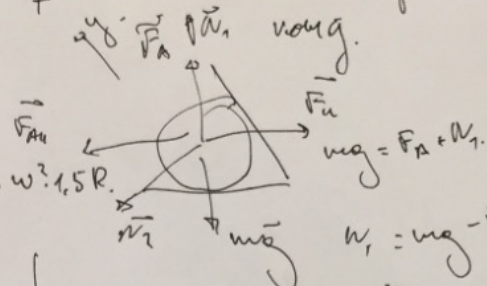 y
F⃗_A N⃗_1
F⃗_u
F⃗_Au
mg = F_A + N_1.
ω² 1,5 R.
N⃗_2
mg⃗
N_1 = mg -